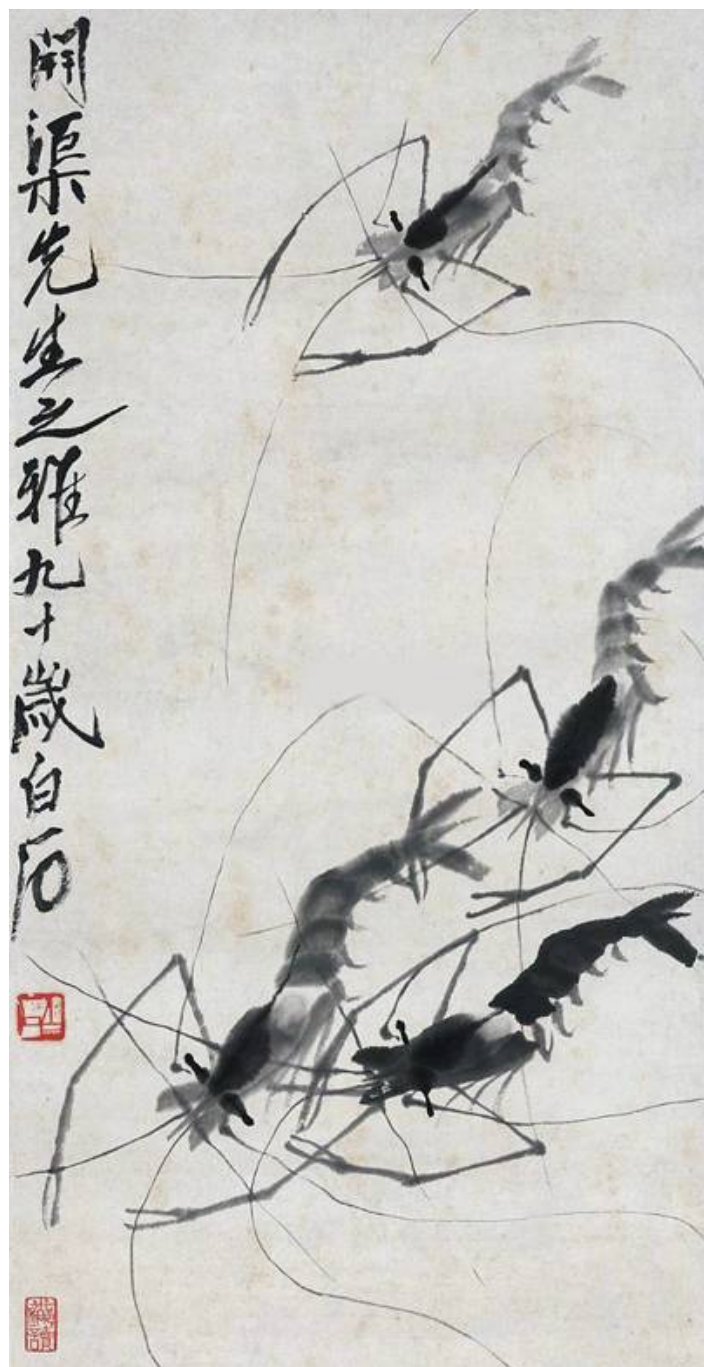 開渠先生之雅九十歲白石